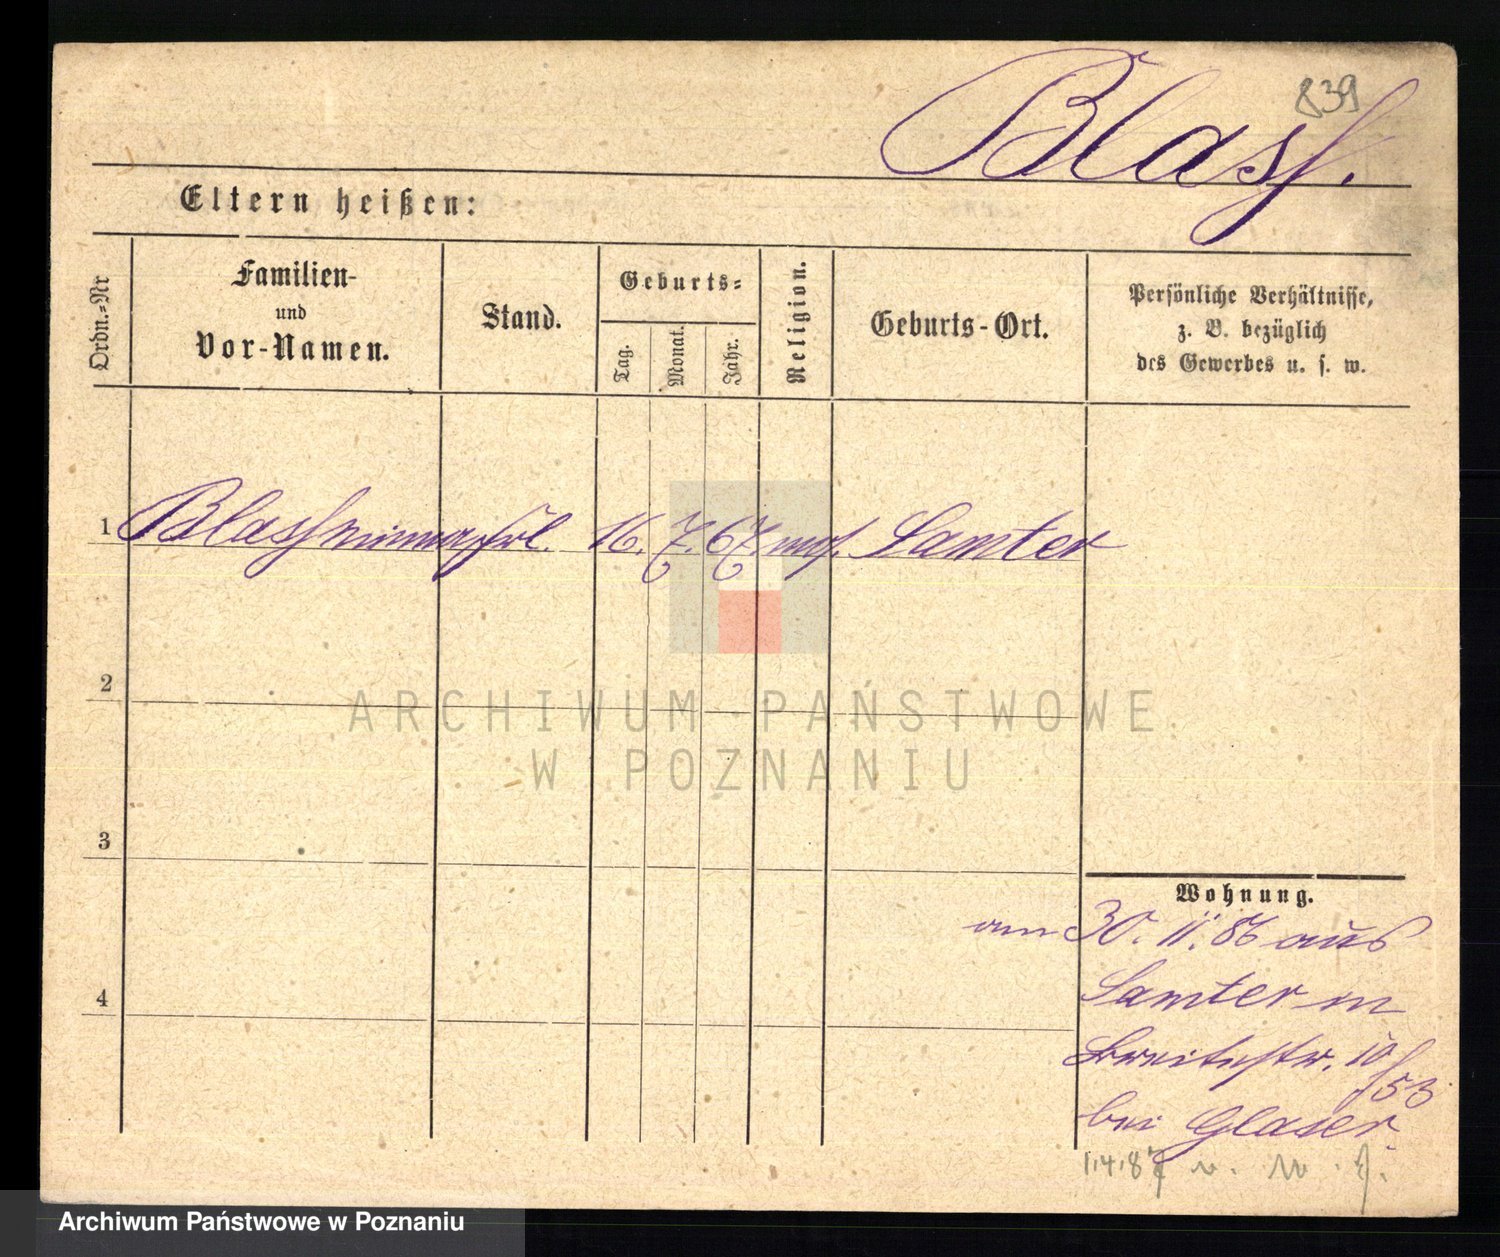 839
Blasf.
Eltern heißen:
Ordn.-Nr
Familien-
und
Vor-Namen.
Stand.
Geburts-
Tag.
Monat.
Jahr.
Religion.
Geburts-Ort.
Persönliche Verhältnisse,
z. B. bezüglich
des Gewerbes u. s. w.
1 Blass Minna Frl. 16. 7. 67 mos. Samter
2
3
4
Wohnung.
am 30. 11. 86 aus
Samter
Breitestr. 10/
53
bei Glaser.
1.4.87
ARCHIWUM PAŃSTWOWE
W POZNANIU
Archiwum Państwowe w Poznaniu